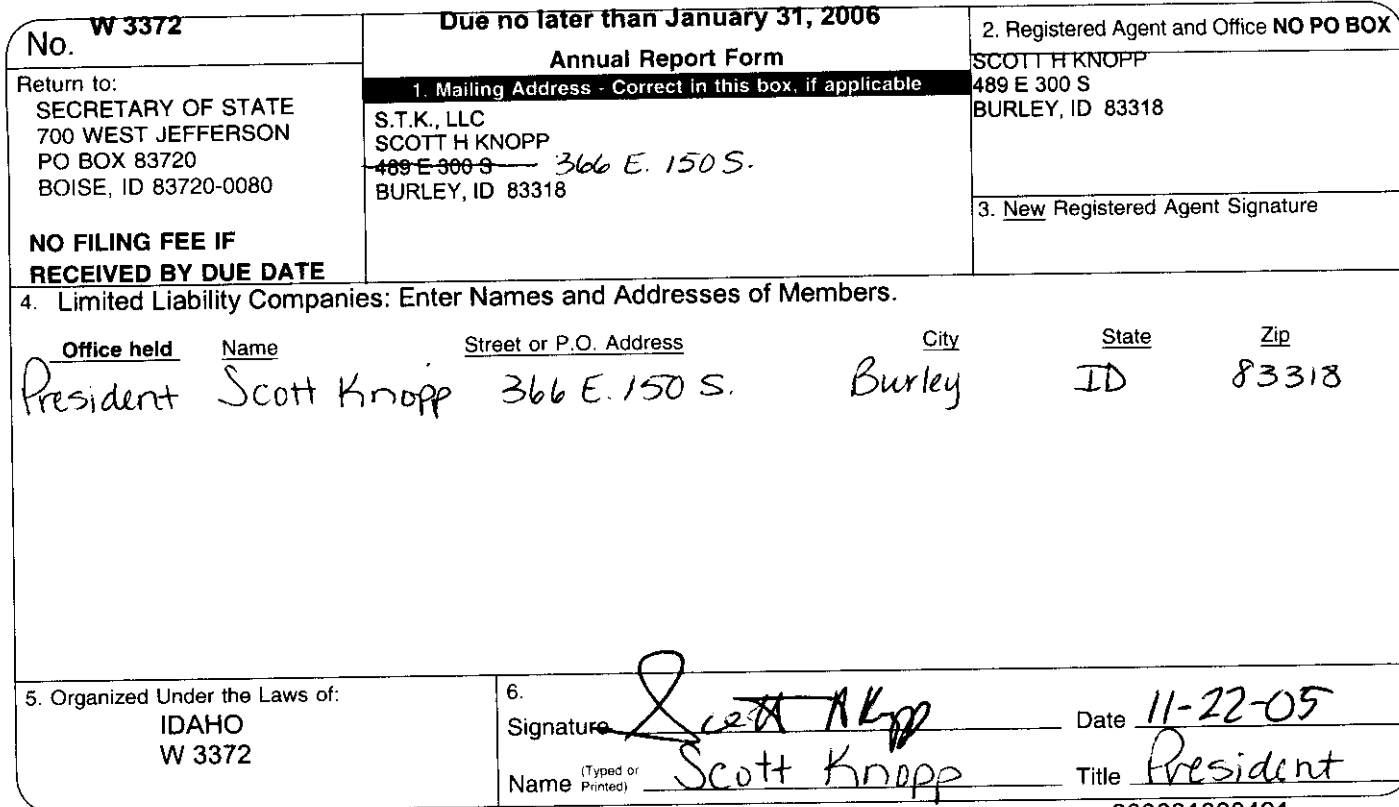 No. W 3372
Return to:
SECRETARY OF STATE
700 WEST JEFFERSON
PO BOX 83720
BOISE, ID 83720-0080
NO FILING FEE IF
RECEIVED BY DUE DATE
Due no later than January 31, 2006
Annual Report Form
1. Mailing Address - Correct in this box, if applicable
S.T.K., LLC
SCOTT H KNOPP
489 E 300 S 366 E. 150 S.
BURLEY, ID 83318
2. Registered Agent and Office NO PO BOX
SCOTT H KNOPP
489 E 300 S
BURLEY, ID 83318
3. New Registered Agent Signature
4. Limited Liability Companies: Enter Names and Addresses of Members.
Office held Name Street or P.O. Address City State Zip
President Scott Knopp 366 E. 150 S. Burley ID 83318
5. Organized Under the Laws of:
IDAHO
W 3372
6.
Signature Scott H Knopp Date 11-22-05
Name (Typed or Printed) Scott Knopp Title President